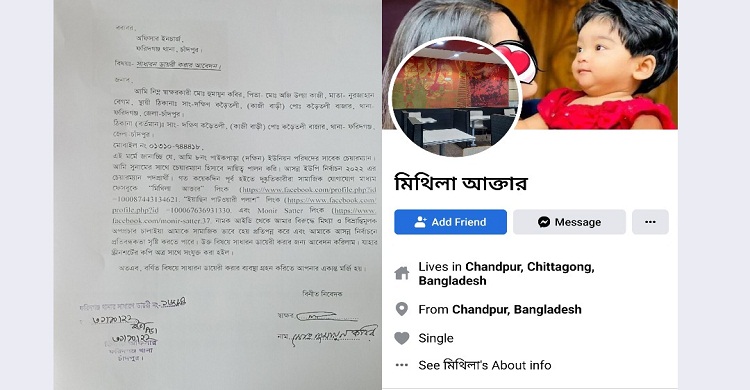 বরাবর,
অফিসার ইনচার্জ,
ফরিদগঞ্জ থানা, চাঁদপুর।
বিষয়ঃ- সাধারন ডায়েরী করার আবেদন।
জনাব,
আমি নিম্ন স্বাক্ষরকারী মোঃ হুমায়ুন কবির, পিতা- মোঃ অজি উল্যা কাজী, মাতা- নুরজাহান
বেগম, স্থায়ী ঠিকানাঃ সাং-দক্ষিণ কড়ৈতলী, (কাজী বাড়ী) পোঃ কড়ৈতলী বাজার, থানা-
ফরিদগঞ্জ, জেলা-চাঁদপুর।
ঠিকানা (বর্তমান)ঃ সাং- দক্ষিণ কড়ৈতলী, (কাজী বাড়ী) পোঃ কড়ৈতলী বাজার, থানা- ফরিদগঞ্জ,
জেলা-চাঁদপুর।
মোবাইল নং ০১৩১০-৭৪৪৪১৮,
এই মর্মে জানাচ্ছি যে, আমি ৮নং পাইকপাড়া (দক্ষিণ) ইউনিয়ন পরিষদের সাবেক চেয়ারম্যান।
আমি সুনামের সাথে চেয়ারম্যান হিসাবে দায়িত্ব পালন করি। আসন্ন ইউপি নির্বাচন ২০২২ এর
চেয়ারম্যান পদপ্রার্থী। গত কয়েকদিন পূর্ব হইতে দুষ্কৃতিকারীরা সামাজিক যোগাযোগ মাধ্যম
ফেসবুকে "মিথিলা আক্তার" লিংক (https://www.facebook.com/profile.php?id
=100087443134621, "ইয়াছিন পাটওয়ারী পলাশ" লিংক (https://www.facebook.com/
profile.php?id =100067636931330, এবং Monir Satter লিংক (https://www.
facebook.com/monir-satter.37 নামক আইডি থেকে আমার বিরুদ্ধে মিথ্যা ও বিভ্রান্তিমূলক
অপপ্রচার চালাইয়া আমাকে সামাজিক ভাবে হেয় প্রতিপন্ন করে এবং আমাকে আসন্ন নির্বাচনে
প্রতিবন্ধকতা সৃষ্টি করতে পারে। উক্ত বিষয়ে সাধারন ডায়েরী করার জন্য আবেদন করিলাম। যাহার
স্ক্রীনশটের কপি অত্র সাথে সংযুক্ত করা হইল।
অতএব, বর্ণিত বিষয়ে সাধারন ডায়েরী করার ব্যবস্থা গ্রহন করিতে আপনার একান্ত মর্জি হয়।
বিনীত নিবেদক
স্বাক্ষর
নাম,
ফরিদগঞ্জ থানার সাধারণ ডায়রী নং
ফরিদগঞ্জ থানা
চাঁদপুর।
মিথিলা আক্তার
Add Friend
Message
Lives in Chandpur, Chittagong,
Bangladesh
From Chandpur, Bangladesh
Single
See মিথিলা's About info